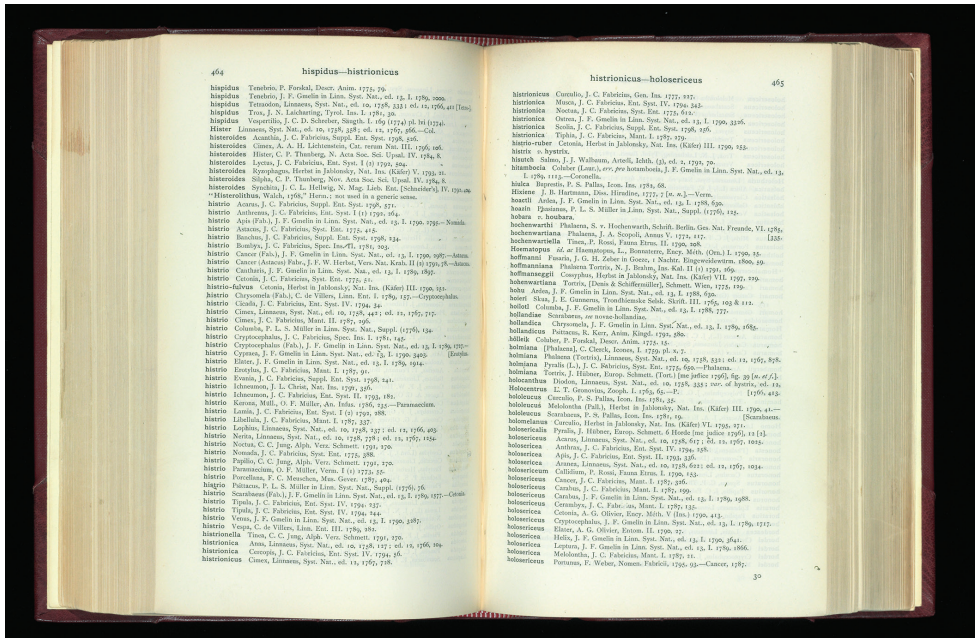 464
hispidus—histrionicus
hispidus Tenebrio, P. Forskal, Descr. Anim. 1775, 79.
hispidus Tenebrio, J. F. Gmelin in Linn. Syst. Nat., ed. 13, I. 1789, 2000.
hispidus Tetraodon, Linnaeus, Syst. Nat., ed. 10, 1758, 333; ed. 12, 1766, 411
hispidus Trox, J. N. Laicharting, Tyrol. Ins. I. 1781, 30.
hispidus Vespertilio, J. C. D. Schreber, Säugth. I. 169 (1774) pl. lvi (1774).
Hister Linnaeus, Syst. Nat., ed. 10, 1758, 358; ed. 12, 1767, 566.—Col.
histeroides Acanthia, J. C. Fabricius, Suppl. Ent. Syst. 1798, 526.
histeroides Cimex, A. A. H. Lichtenstein, Cat. rerum Nat. III. 1796, 106.
histeroides Hister, C. P. Thunberg, N. Acta Soc. Sci. Upsal. IV. 1784, 8.
histeroides Lyctus, J. C. Fabricius, Ent. Syst. I (2) 1792, 504.
histeroides Ryzophagus, Herbst in Jablonsky, Nat. Ins. (Käfer) V. 1793, 21.
histeroides Silpha, C. P. Thunberg, Nov. Acta Soc. Sci. Upsal. IV. 1784, 8.
histeroides Synchita, J. C. L. Hellwig, N. Mag. Lieb. Ent. [Schneider's], IV. 1792,
"Histerolithus, Walch, 1768," Herm.; not used in a generic sense.
histrio Acarus, J. C. Fabricius, Suppl. Ent. Syst. 1798, 571.
histrio Anthrenus, J. C. Fabricius, Ent. Syst. I (1) 1792, 264.
histrio Apis (Fab.), J. F. Gmelin in Linn. Syst. Nat., ed. 13, I. 1790, 2793.—Nomada.
histrio Astacus, J. C. Fabricius, Syst. Ent. 1775, 415.
histrio Banchus, J. C. Fabricius, Suppl. Ent. Syst. 1798, 234.
histrio Bombyx, J. C. Fabricius, Spec. Ins. II. 1781, 205.
histrio Cancer (Fab.), J. F. Gmelin in Linn. Syst. Nat., ed. 13, I. 1790, 2987.—Astacus.
histrio Cancer (Astacus) Fabr., J. F. W. Herbst, Vers. Nat. Krab. II (2) 1792, 78.—Astacus.
histrio Cantharis, J. F. Gmelin in Linn. Syst. Nat., ed. 13, I. 1789, 1897.
histrio Cetonia, J. C. Fabricius, Syst. Ent. 1775, 51.
histrio-fulvus Cetonia, Herbst in Jablonsky, Nat. Ins. (Käfer) III. 1790, 251.
histrio Chrysomela (Fab.), C. de Villers, Linn. Ent. I. 1789, 157.—Cryptocephalus.
histrio Cicada, J. C. Fabricius, Ent. Syst. IV. 1794, 34.
histrio Cimex, Linnaeus, Syst. Nat., ed. 10, 1758, 442; ed. 12, 1767, 717.
histrio Cimex, J. C. Fabricius, Mant. II. 1787, 296.
histrio Columba, P. L. S. Müller in Linn. Syst. Nat., Suppl. (1776), 134.
histrio Cryptocephalus, J. C. Fabricius, Spec. Ins. I. 1781, 145.
histrio Cryptocephalus (Fab.), J. F. Gmelin in Linn. Syst. Nat., ed. 13, I. 1789, 1717.—
histrio Cypraea, J. F. Gmelin in Linn. Syst. Nat., ed. 13, I. 1790, 3403. [Erotylus.
histrio Elater, J. F. Gmelin in Linn. Syst. Nat., ed. 13, I. 1789, 1914.
histrio Erotylus, J. C. Fabricius, Mant. I. 1787, 91.
histrio Evania, J. C. Fabricius, Suppl. Ent. Syst. 1798, 241.
histrio Ichneumon, J. L. Christ, Nat. Ins. 1791, 356.
histrio Ichneumon, J. C. Fabricius, Ent. Syst. II. 1793, 182.
histrio Kerona, Müll., O. F. Müller, An. Infus. 1786, 235.—Paramaecium.
histrio Lamia, J. C. Fabricius, Ent. Syst. I (2) 1792, 288.
histrio Libellula, J. C. Fabricius, Mant. I. 1787, 337.
histrio Lophius, Linnaeus, Syst. Nat., ed. 10, 1758, 237; ed. 12, 1766, 403.
histrio Nerita, Linnaeus, Syst. Nat., ed. 10, 1758, 778; ed. 12, 1767, 1254.
histrio Noctua, C. C. Jung, Alph. Verz. Schmett. 1791, 270.
histrio Nomada, J. C. Fabricius, Syst. Ent. 1775, 388.
histrio Papilio, C. C. Jung, Alph. Verz. Schmett. 1791, 270.
histrio Paramaecium, O. F. Müller, Verm. I (1) 1773, 55.
histrio Porcellana, F. C. Meuschen, Mus. Gever. 1787, 404.
histrio Psittacus, P. L. S. Müller in Linn. Syst. Nat., Suppl. (1776), 76.
histrio Scarabaeus (Fab.), J. F. Gmelin in Linn. Syst. Nat., ed. 13, I. 1789, 1577.—Cetonia
histrio Tipula, J. C. Fabricius, Ent. Syst. IV. 1794, 237.
histrio Tipula, J. C. Fabricius, Ent. Syst. IV. 1794, 244.
histrio Venus, J. F. Gmelin in Linn. Syst. Nat., ed. 13, I. 1790, 3287.
histrio Vespa, C. de Villers, Linn. Ent. III. 1789, 282.
histrionella Tinea, C. C. Jung, Alph. Verz. Schmett. 1791, 270.
histrionica Anas, Linnaeus, Syst. Nat., ed. 10, 1758, 127; ed. 12, 1766, 204.
histrionica Cercopis, J. C. Fabricius, Ent. Syst. IV. 1794, 56.
histrionicus Cimex, Linnaeus, Syst. Nat., ed. 12, 1767, 718.
histrionicus—holosericeus
465
histrionicus Curculio, J. C. Fabricius, Gen. Ins. 1777, 227.
histrionica Musca, J. C. Fabricius, Ent. Syst. IV. 1794, 343.
histrionica Noctua, J. C. Fabricius, Syst. Ent. 1775, 612.
histrionica Ostrea, J. F. Gmelin in Linn. Syst. Nat., ed. 13, I. 1790, 3326.
histrionica Scolia, J. C. Fabricius, Suppl. Ent. Syst. 1798, 256.
histrionica Tiphia, J. C. Fabricius, Mant. I. 1787, 279.
histrio-ruber Cetonia, Herbst in Jablonsky, Nat. Ins. (Käfer) III. 1790, 253.
histrix v. hystrix.
hisutch Salmo, J. J. Walbaum, Artedi, Ichth. (3), ed. 2, 1792, 70.
hitambocia Coluber (Laur.), err. pro hotamboeia, J. F. Gmelin in Linn. Syst. Nat., ed. 13,
I. 1789, 1115.—Coronella.
hiulca Buprestis, P. S. Pallas, Icon. Ins. 1782, 68.
Hixiene J. B. Hartmann, Diss. Hirudine, 1777, 7 [n. n.].—Verm.
hoactli Ardea, J. F. Gmelin in Linn. Syst. Nat., ed. 13, I. 1788, 630.
hoazin Phasianus, P. L. S. Müller in Linn. Syst. Nat., Suppl. (1776), 125.
hobara v. houbara.
hochenwarthi Phalaena, S. v. Hochenwarth, Schrift. Berlin. Ges. Nat. Freunde, VI. 1785,
hochenwartiana Phalaena, J. A. Scopoli, Annus V. 1772, 117. [335.
hochenwartiella Tinea, P. Rossi, Fauna Etrus. II. 1790, 208.
Hoematopus id. ac Haematopus, L., Bonnaterre, Ency. Méth. (Orn.) I. 1790, 22.
hoffmanni Fusaria, J. G. H. Zeder in Goeze, 1 Nachtr. Eingeweidewürm. 1800, 59.
hoffmanniana Phalaena Tortrix, N. J. Brahm, Ins. Kal. II (1) 1791, 269.
hoffmanseggi Cossyphus, Herbst in Jablonsky, Nat. Ins. (Käfer) VII. 1797, 229.
hohenwartiana Tortrix, [Denis & Schiffermüller], Schmett. Wien, 1775, 129.
hohu Ardea, J. F. Gmelin in Linn. Syst. Nat., ed. 13, I. 1788, 630.
hoieri Skua, J. E. Gunnerus, Trondhiemske Selsk. Skrift. III. 1765, 103 & 112.
hoilotl Columba, J. F. Gmelin in Linn. Syst. Nat., ed. 13, I. 1788, 777.
hollandiae Scarabaeus, see novae-hollandiae.
hollandica Chrysomela, J. F. Gmelin in Linn. Syst. Nat., ed. 13, I. 1789, 1685.
hollandicus Psittacus, R. Kerr, Anim. Kingd. 1792, 580.
hölleik Coluber, P. Forskal, Descr. Anim. 1775, 15.
holmiana [Phalaena], C. Clerck, Icones, I. 1759, pl. x. 7.
holmiana Phalaena (Tortrix), Linnaeus, Syst. Nat., ed. 10, 1758, 532; ed. 12, 1767, 878.
holmiana Pyralis (L.), J. C. Fabricius, Syst. Ent. 1775, 650.—Phalaena.
holmiana Tortrix, J. Hübner, Europ. Schmett. (Tort.) [me judice 1796], fig. 39 [n. et f.].
holocanthus Diodon, Linnaeus, Syst. Nat., ed. 10, 1758, 335; var. of hystrix, ed. 12,
Holocentrus L. T. Gronovius, Zooph. I. 1763, 65.—P. [1766, 413.
hololeucus Curculio, P. S. Pallas, Icon. Ins. 1781, 35.
hololeucus Melolontha (Pall.), Herbst in Jablonsky, Nat. Ins. (Käfer) III. 1790, 41.—
hololeucus Scarabaeus, P. S. Pallas, Icon. Ins. 1781, 19. [Scarabaeus.
holomelanus Curculio, Herbst in Jablonsky, Nat. Ins. (Käfer) VI. 1795, 271.
holosericealis Pyralis, J. Hübner, Europ. Schmett. 6 Horde [me judice 1796], 12 [2].
holosericeus Acarus, Linnaeus, Syst. Nat., ed. 10, 1758, 617; ed. 12, 1767, 1025.
holosericeus Anthrax, J. C. Fabricius, Ent. Syst. IV. 1794, 258.
holosericea Apis, J. C. Fabricius, Ent. Syst. II. 1793, 336.
holosericea Aranea, Linnaeus, Syst. Nat., ed. 10, 1758, 622; ed. 12, 1767, 1034.
holosericeum Callidium, P. Rossi, Fauna Etrus. I. 1790, 153.
holosericeus Cancer, J. C. Fabricius, Mant. I. 1787, 326.
holosericeus Carabus, J. C. Fabricius, Mant. I. 1787, 199.
holosericeus Carabus, J. F. Gmelin in Linn. Syst. Nat., ed. 13, I. 1789, 1988.
holosericeus Cerambyx, J. C. Fabricius, Mant. I. 1787, 135.
holosericea Cetonia, A. G. Olivier, Ency. Méth. V (Ins.) 1790, 413.
holosericeus Cryptocephalus, J. F. Gmelin in Linn. Syst. Nat., ed. 13, I. 1789, 1717.
holosericeus Elater, A. G. Olivier, Entom. II. 1790, 27.
holosericea Helix, J. F. Gmelin in Linn. Syst. Nat., ed. 13, I. 1790, 3641.
holosericea Leptura, J. F. Gmelin in Linn. Syst. Nat., ed. 13, I. 1789, 1866.
holosericea Melolontha, J. C. Fabricius, Mant. I. 1787, 21.
holosericeus Portunus, F. Weber, Nomen. Fabricii, 1795, 93.—Cancer, 1787.
30